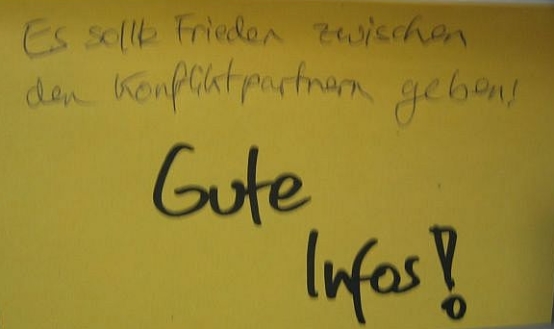 Es sollte Frieden zwischen
den Konfliktpartnern geben!
Gute
Infos!